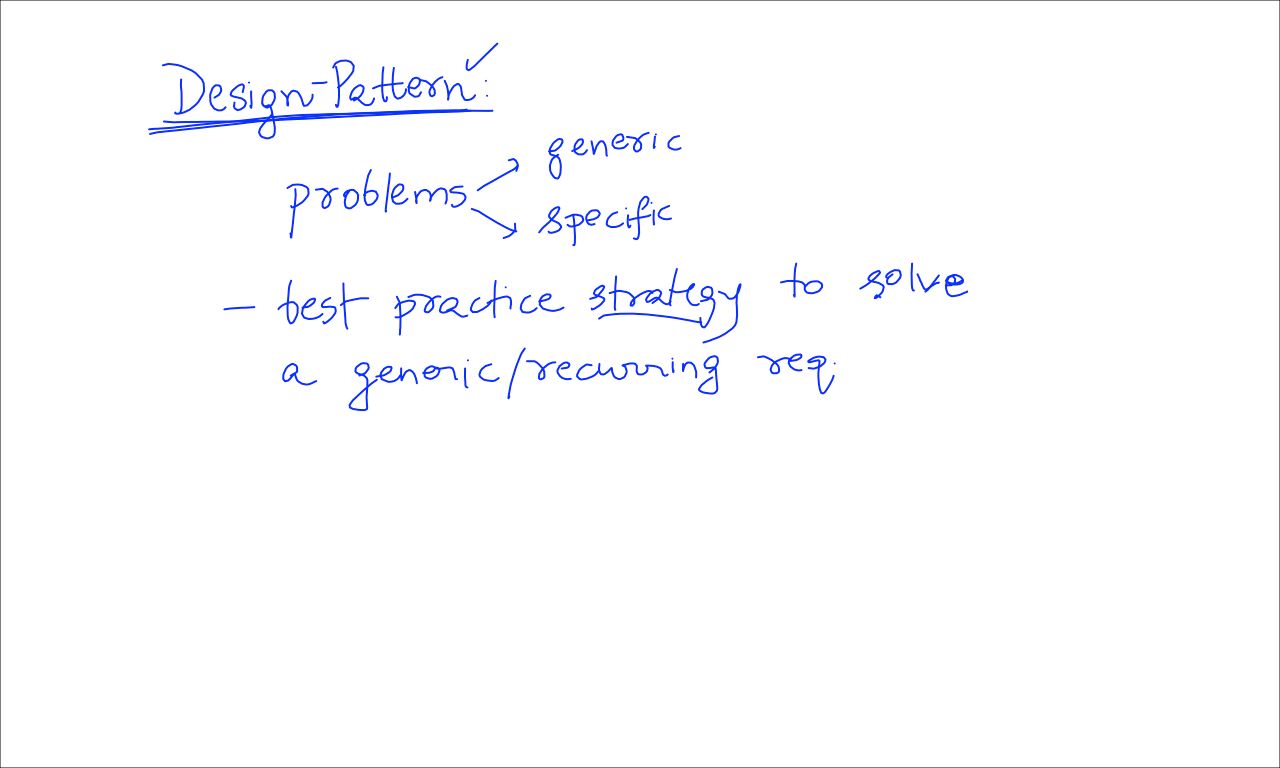 Design-Pattern:
problems
generic
specific
- best practice strategy to solve
a generic/recurring req.